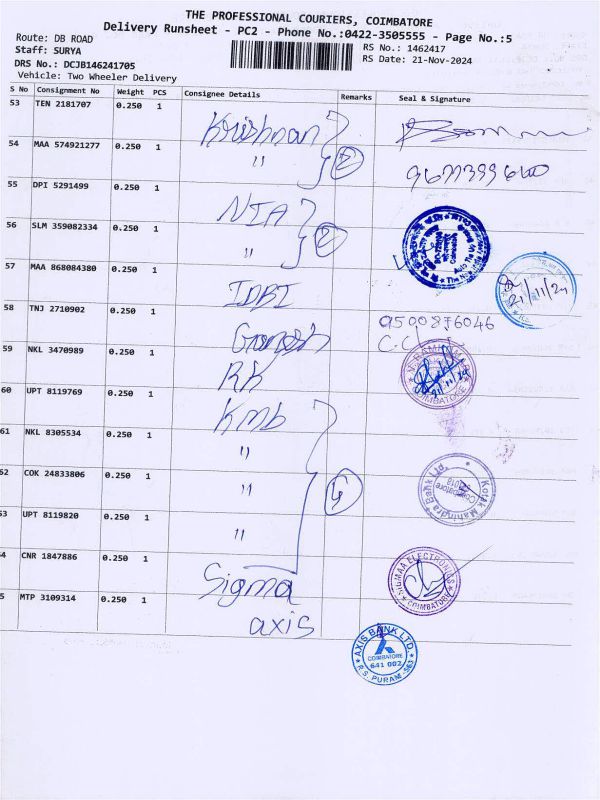 THE PROFESSIONAL COURIERS, COIMBATORE
Delivery Runsheet - PC2 - Phone No.:0422-3505555 - Page No.:5
Route: DB ROAD
Staff: SURYA
RS No.: 1462417
DRS No.: DCJB146241705
RS Date: 21-Nov-2024
Vehicle: Two Wheeler Delivery
S No Consignment No Weight PCS Consignee Details Remarks Seal & Signature
53 TEN 2181707 0.250 1 Krishnan
54 MAA 574921277 0.250 1 " 2
55 DPI 5291499 0.250 1 NIA
56 SLM 359082334 0.250 1 " 2
57 MAA 868084380 0.250 1 IDBI 21/11/24
58 TNJ 2710902 0.250 1 Ganesh 9500876046
59 NKL 3470989 0.250 1 RK COIMBATORE
60 UPT 8119769 0.250 1 Kmb
61 NKL 8305534 0.250 1 "
62 COK 24833806 0.250 1 " 4 Kotak Mahindra Bank Ltd. Coimbatore
53 UPT 8119820 0.250 1 "
4 CNR 1847886 0.250 1 Sigma SIGMAA ELECTRONICS COIMBATORE
5 MTP 3109314 0.250 1 axis AXIS BANK LTD. COIMBATORE 641 002 R.S. PURAM